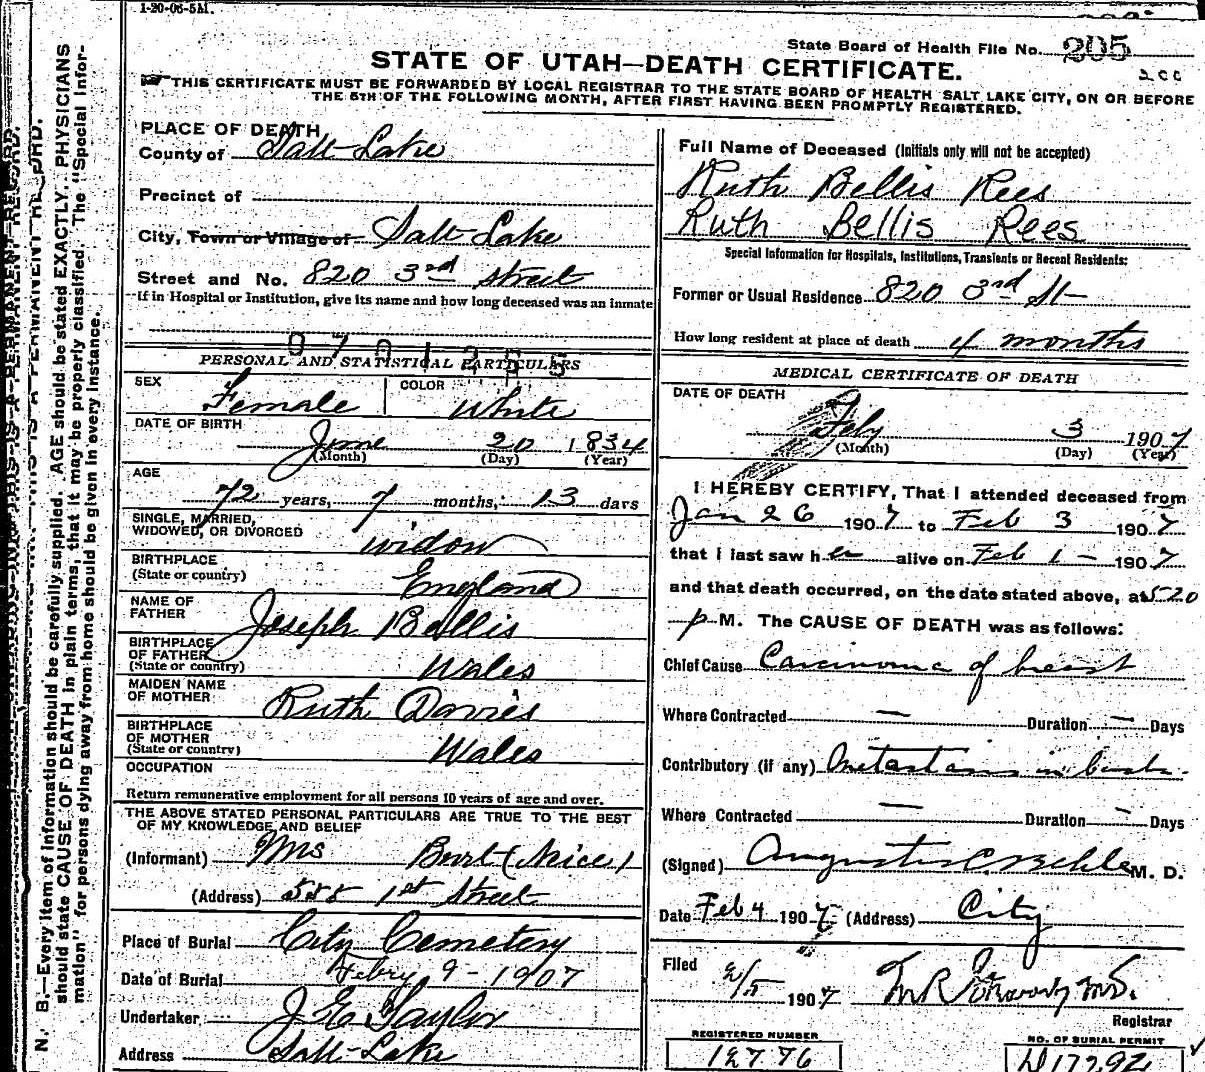 1-20-06-5M.
State Board of Health File No. 205
200
STATE OF UTAH—DEATH CERTIFICATE.
THIS CERTIFICATE MUST BE FORWARDED BY LOCAL REGISTRAR TO THE STATE BOARD OF HEALTH SALT LAKE CITY, ON OR BEFORE
THE 5TH OF THE FOLLOWING MONTH, AFTER FIRST HAVING BEEN PROMPTLY REGISTERED.
PLACE OF DEATH
County of Salt Lake
Precinct of
City, Town or Village of Salt Lake
Street and No. 820 3rd Street
If in Hospital or Institution, give its name and how long deceased was an inmate
0701255
PERSONAL AND STATISTICAL PARTICULARS
SEX Female COLOR White
DATE OF BIRTH June 20 1834
(Month) (Day) (Year)
AGE
72 years, 7 months, 13 days
SINGLE, MARRIED,
WIDOWED, OR DIVORCED widow
BIRTHPLACE
(State or country) England
NAME OF
FATHER Joseph Bellis
BIRTHPLACE
OF FATHER
(State or country) Wales
MAIDEN NAME
OF MOTHER Ruth Davies
BIRTHPLACE
OF MOTHER
(State or country) Wales
OCCUPATION
Return remunerative employment for all persons 10 years of age and over.
THE ABOVE STATED PERSONAL PARTICULARS ARE TRUE TO THE BEST
OF MY KNOWLEDGE AND BELIEF
(Informant) Mrs Burt (Niece)
(Address) 555 1st Street
Place of Burial City Cemetery
Date of Burial Febry 9-1907
Undertaker J E Taylor
Address Salt Lake
Full Name of Deceased (Initials only will not be accepted)
Ruth Bellis Rees
Ruth Bellis Rees
Special Information for Hospitals, Institutions, Transients or Recent Residents:
Former or Usual Residence 820 3rd St
How long resident at place of death 4 months
MEDICAL CERTIFICATE OF DEATH
DATE OF DEATH
Feby 3 1907
(Month) (Day) (Year)
I HEREBY CERTIFY, That I attended deceased from
Jan 26 1907 to Feb 3 1907
that I last saw her alive on Feb 1 - 1907
and that death occurred, on the date stated above, at 520
p M. The CAUSE OF DEATH was as follows:
Chief Cause Carcinoma of breast
Where Contracted — Duration — Days
Contributory (if any) Metastasis in
Where Contracted — Duration - Days
(Signed) Augustus C. Behle M. D.
Date Feb 4 1907 (Address) City
Filed 2/5 1907 M.D.
Registrar
REGISTERED NUMBER
12776
NO. OF BURIAL PERMIT
N. B.—Every item of information should be carefully supplied. AGE should be stated EXACTLY. PHYSICIANS
should state CAUSE OF DEATH in plain terms, that it may be properly classified. The "Special Infor-
mation" for persons dying away from home should be given in every instance.